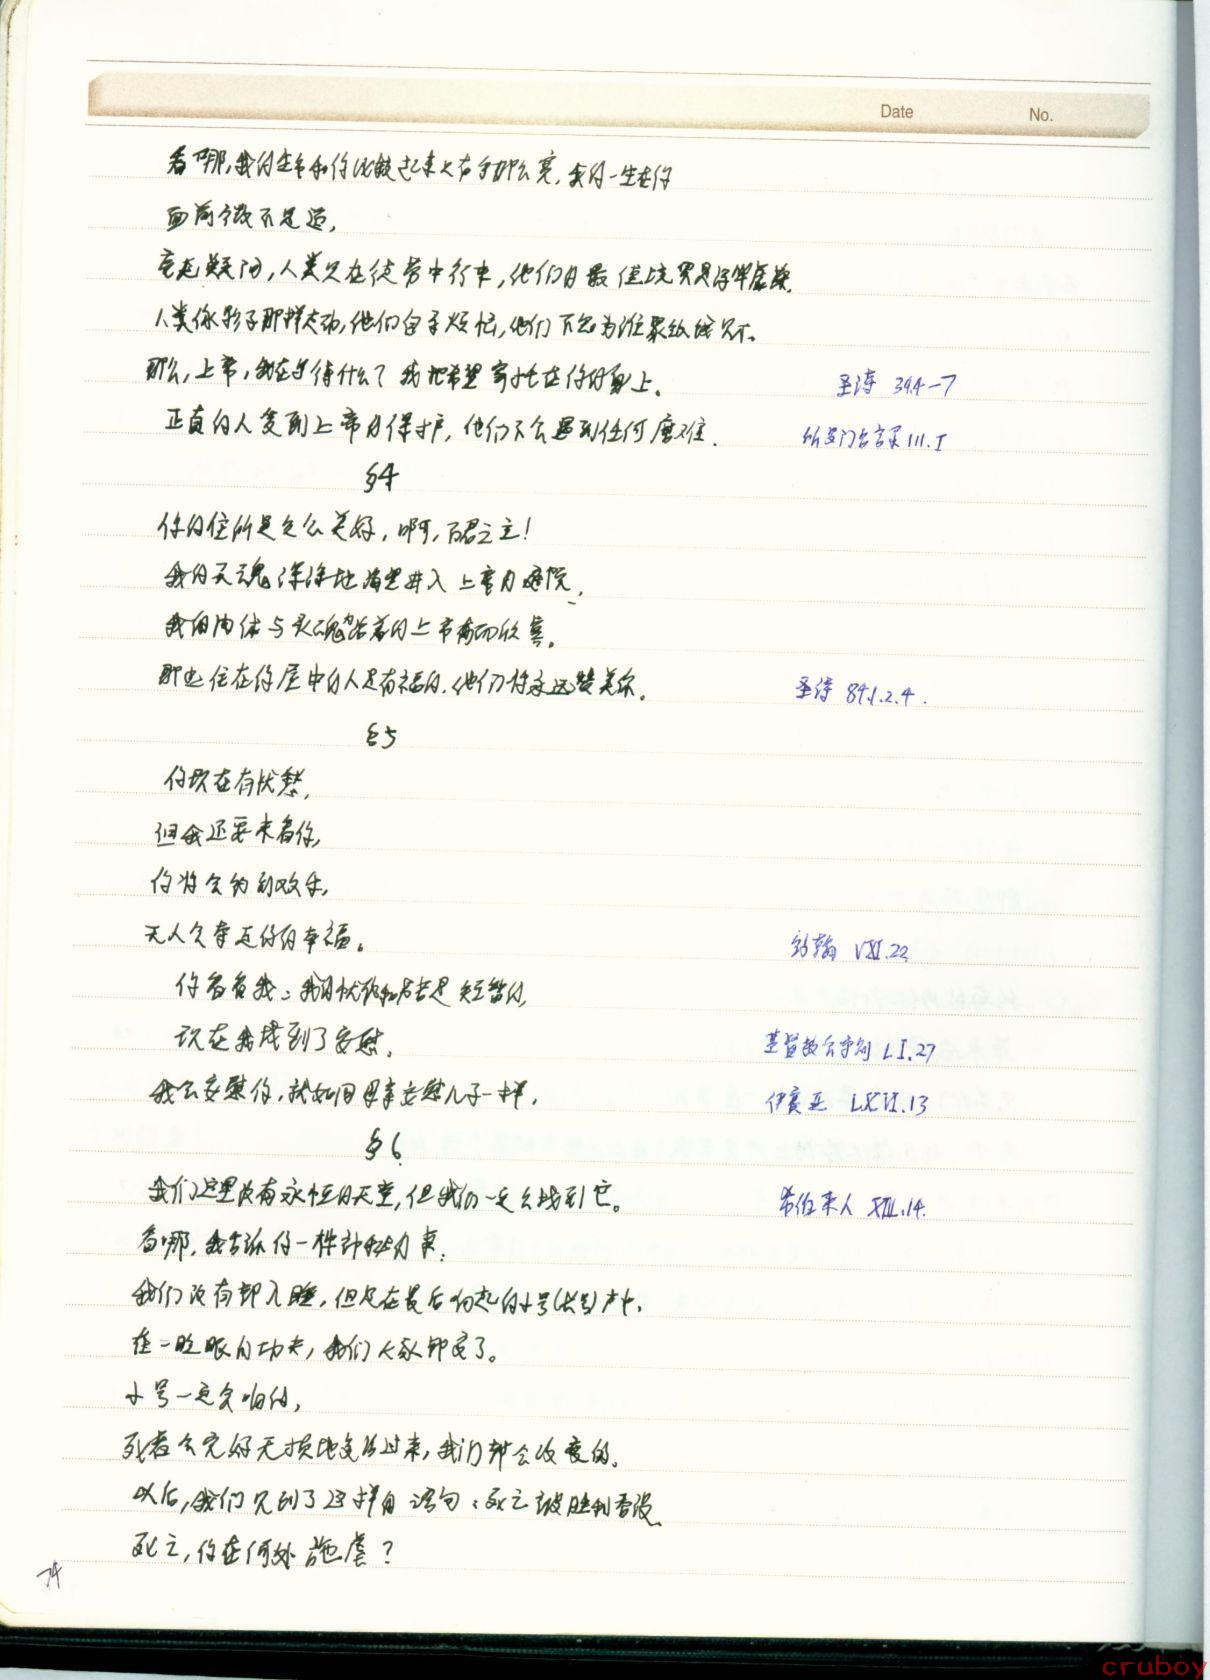 Date No.
看哪,我的生命和你比较起来只有手那么宽,我的一生在你
面前微不足道,
毫无疑问,人类只在徒劳中行走,他们的最佳境界是浮华虚荣.
人类像影子那样走动,他们白手烦恼,他们不知为谁聚敛钱财.
那么,上帝,我在等待什么?我把希望寄托在你的身上。 圣诗 39.4-7
正直的人受到上帝的保护,他们不会遇到任何磨难. 所罗门名言录 III.I
§4
你的住所是怎么美好,啊,万君之主!
我的灵魂深深地渴望进入上帝的庭院,
我的肉体与灵魂为活着的上帝而欣喜。
那些住在你屋中的人是有福的,他们将永远赞美你。 圣诗 84.1.2.4.
§5
你现在有忧愁,
但我还要来看你,
你将会得到欢乐,
无人会夺走你的幸福。 约翰 VXI.22
你看看我:我的忧愁和劳苦是短暂的,
现在我找到了安慰. 基督教会守则 LI.27
我会安慰你,就如同母亲安慰儿子一样, 伊赛亚 LXVI.13
§6
我们这里没有永恒的天堂,但我们一定会找到它。 希伯来人 XIII.14.
看哪,我告诉你一件神秘的事:
我们没有都入睡,但是在最后响起的小号(长号)声中,
在一眨眼的功夫,我们大家都变了。
小号一定会响的,
死者会完好无损地复活过来,我们都会改变的。
以后,我们见到了这样的语句:死亡被胜利吞没
死亡,你在何处施虐?
74
cruboy